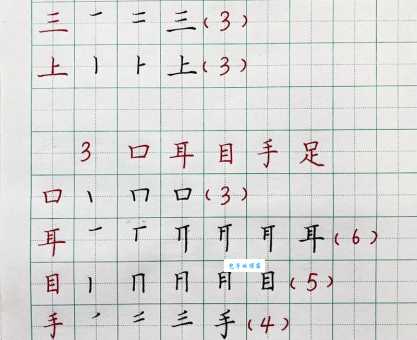 三 一 二 三(3)
上 丨 ⺊ 上(3)
3 口耳目手足
口 丨 冂 口(3)
耳 一 丅 耳(6)
目 丨 冂 月 目(5)
手 丿 二 三 手(4)